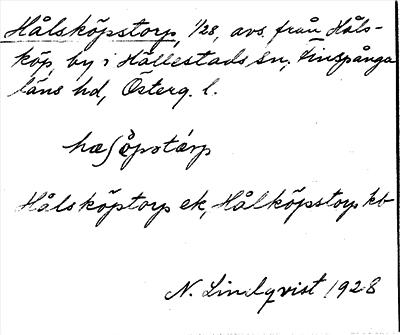 Hålsköpstorp, 1/28, avs. från Håls-
köp by i Hällestads sn, Finspånga
läns hd, Österg. l.
Hålsköptorp ek, Hålköpstorp kb
N. Lindqvist 1928